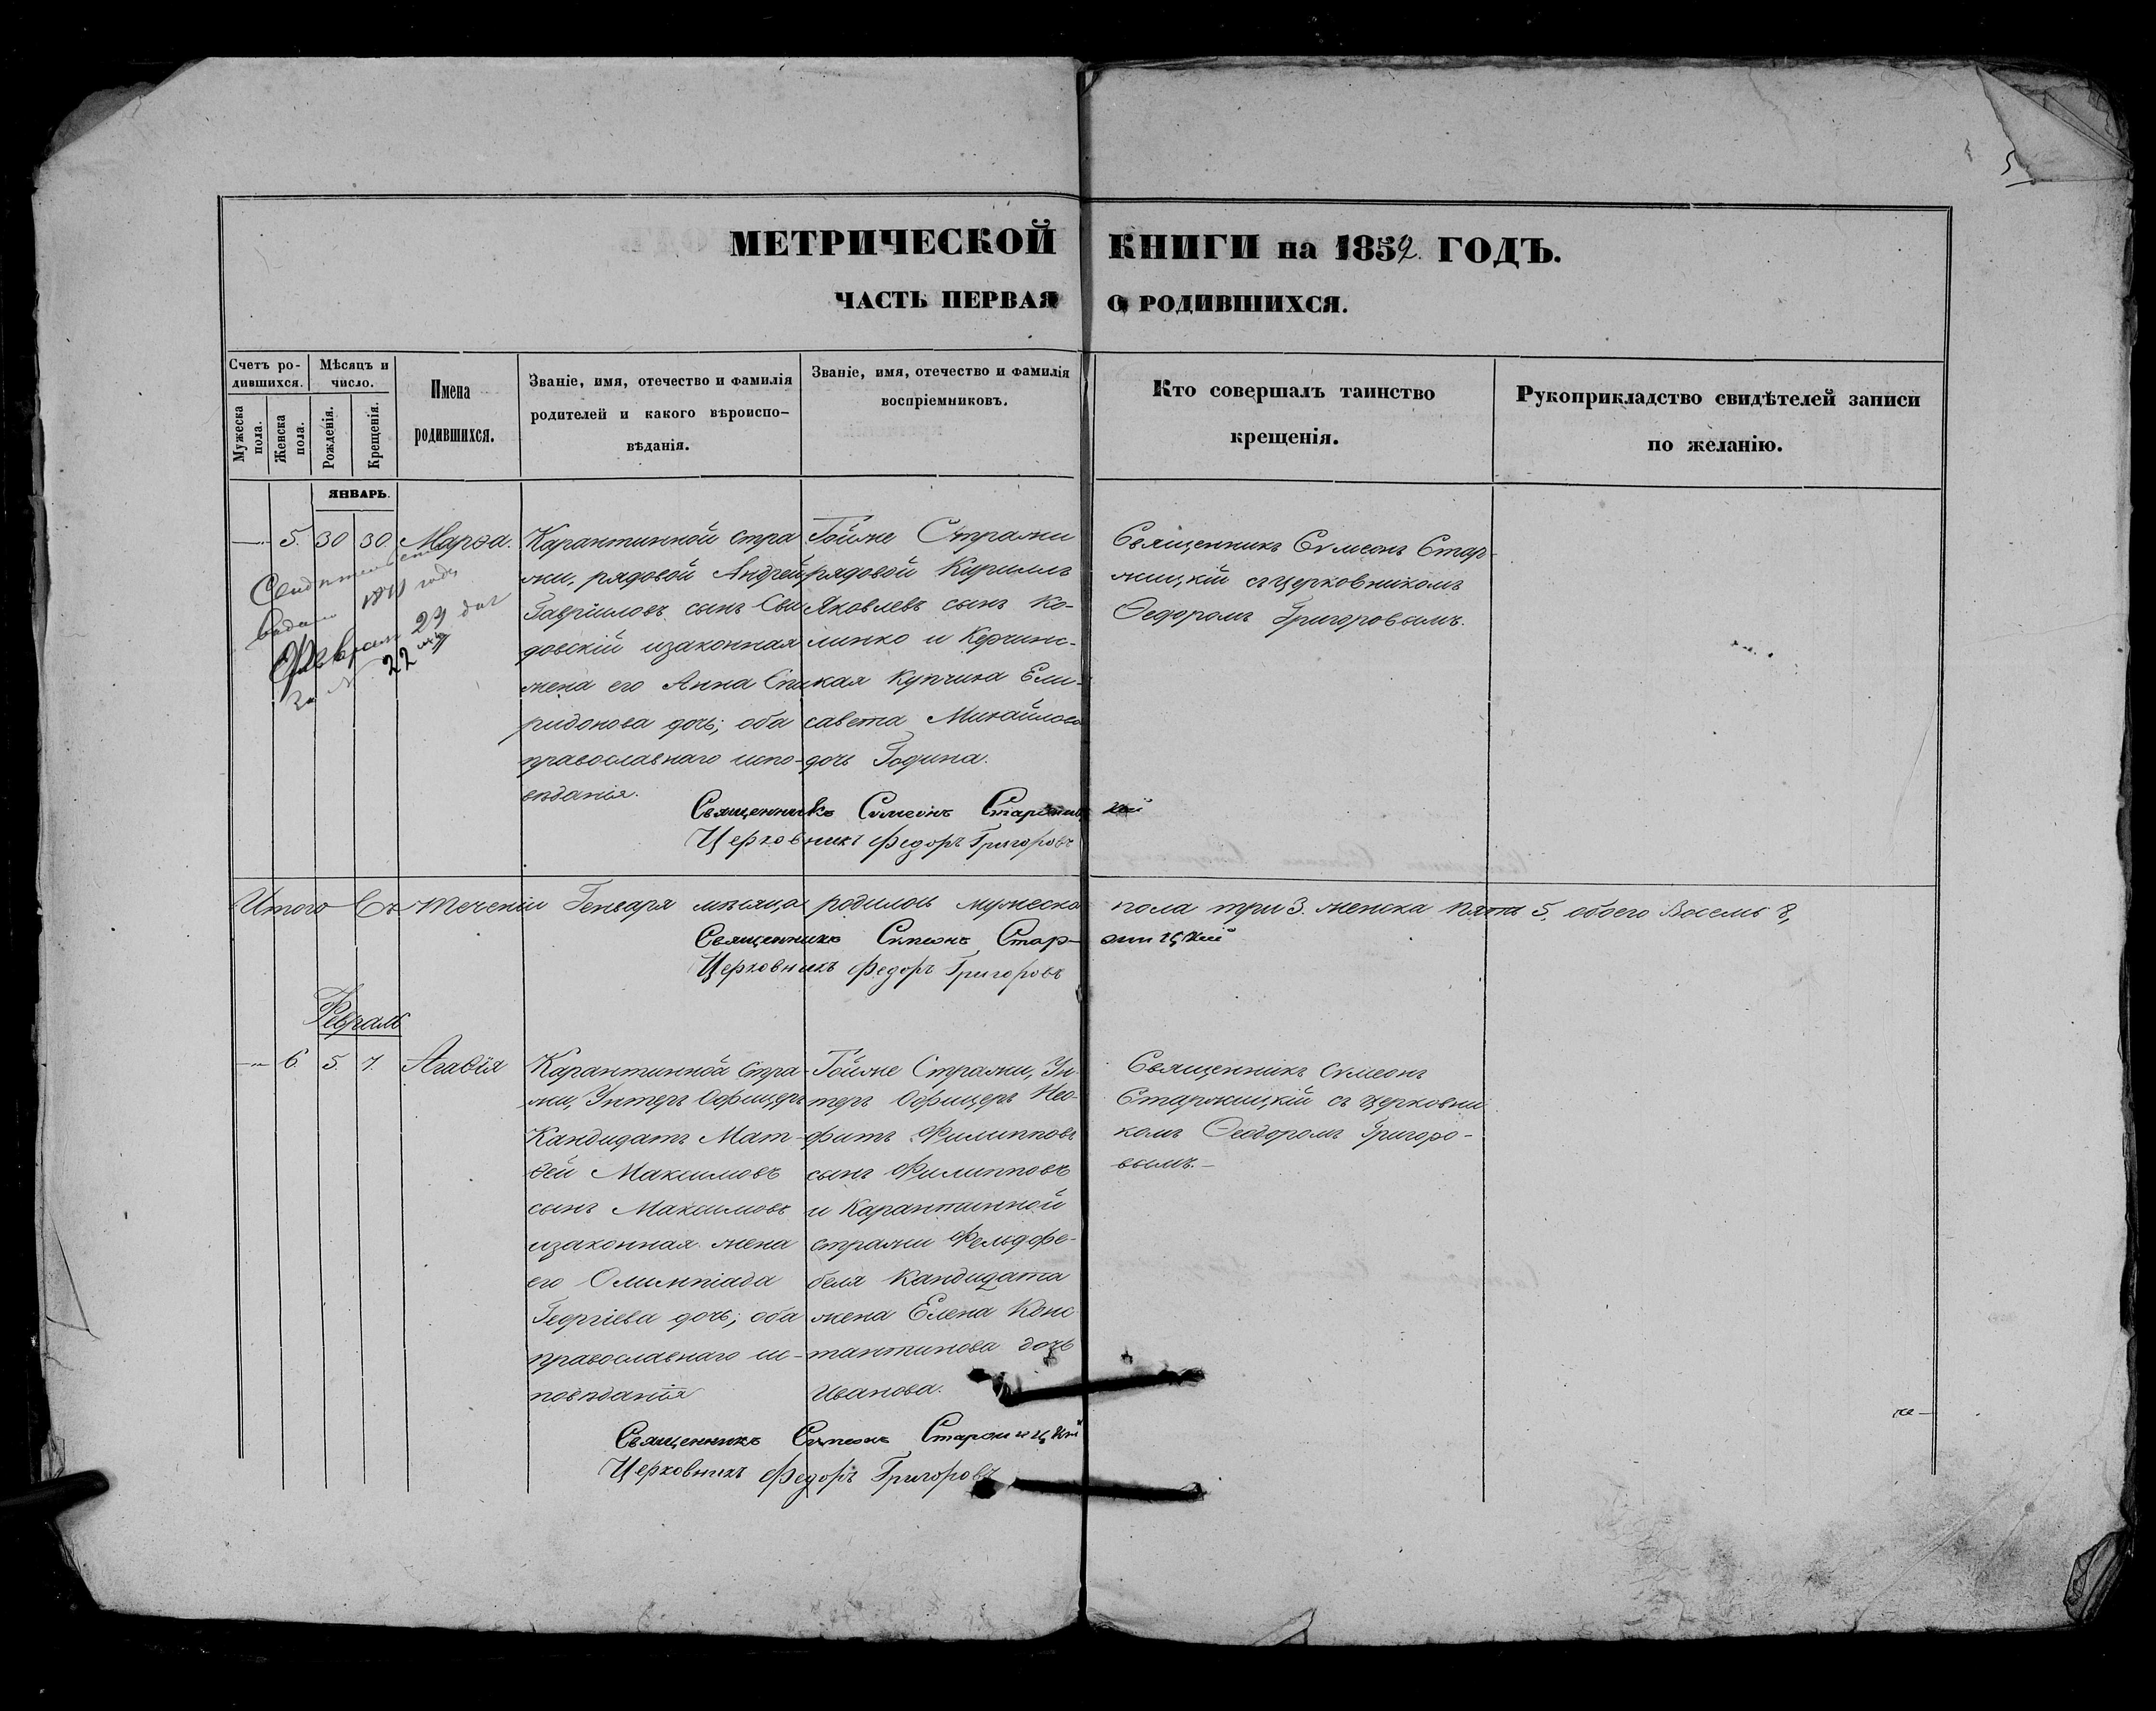 5
МЕТРИЧЕСКОЙ КНИГИ на 1852. ГОДЪ.
ЧАСТЬ ПЕРВАЯ О РОДИВШИХСЯ.
Счетъ ро-
дившихся.
Мужеска пола.
Женска пола.
Мѣсяцъ и
число.
Рожденія.
Крещенія.
Имена
родившихся.
Званіе, имя, отечество и фамилія
родителей и какого вѣроиспо-
вѣданія.
Званіе, имя, отечество и фамилія
воспріемниковъ.
Кто совершалъ таинство
крещенія.
Рукоприкладство свидѣтелей записи
по желанію.
ЯНВАРЬ.
5. 30 30. Марѳа.
Февраля 29 дня
за № 22
Карантинной стра
жи, рядовой Андрей
Гавріиловъ сынъ Сви
довскій изаконная
жена его Анна Спи
ридонова дочь; оба
православнаго испо-
вѣданія.
Тойже Стражи
рядовой Кириллъ
Яковлевъ сынъ Ко-
линко и Керчинс-
кая Купчиха Ели-
савета Михайлова
дочь Година.
Священникъ Сѵмеонъ Стар-
жицкій съ церковникомъ
Ѳедоромъ Григоровымъ.
Священникъ Сѵмеонъ Старжицкій
Церковникъ Федоръ Григоровъ
Итого Въ теченіи Генваря мѣсяца родилось мужеска пола три 3. женска пять 5. обоего Восемь 8,
Священникъ Сѵмеонъ Стар-жицкій
Церковникъ Федоръ Григоровъ
Февраль
6. 5. 7. Агавія
Карантинной Стра-
жи, Унтеръ Офицеръ
Кандидатъ Мат-
вей Максимовъ
сынъ Максимовъ
изаконная жена
его Олимпіада
Георгіева дочь; оба
православнаго ис-
повѣданія
Тойже Стражи, Ун-
теръ Офицеръ Нео-
фитъ Филипповъ
сынъ Филипповъ
и Карантинной
стражи Фельдфе-
беля Кандидата
жена Елена Конс
тантинова дочь
Иванова.
Священникъ Сѵмеонъ
Старжицкій съ церковни
комъ Ѳеодоромъ Григоро-
вымъ.
Священникъ Сѵмеонъ Старжицкій
Церковникъ Федоръ Григоровъ